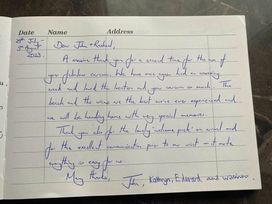 Date Name Address
Dear John + Rachel,
A massive thank you for a second time for the use of
your fabulous caravan. We have once again had an amazing
week and loved the location and your caravan so much. The
beach and the views are the best we've ever experienced and
we will be heading home with very special memories.
Thank you also for the lovely welcome pack on arrival and
for the excellent communication prior to our visit - it made
everything so easy for us.
Many thanks,
John, Kathryn, Edward and